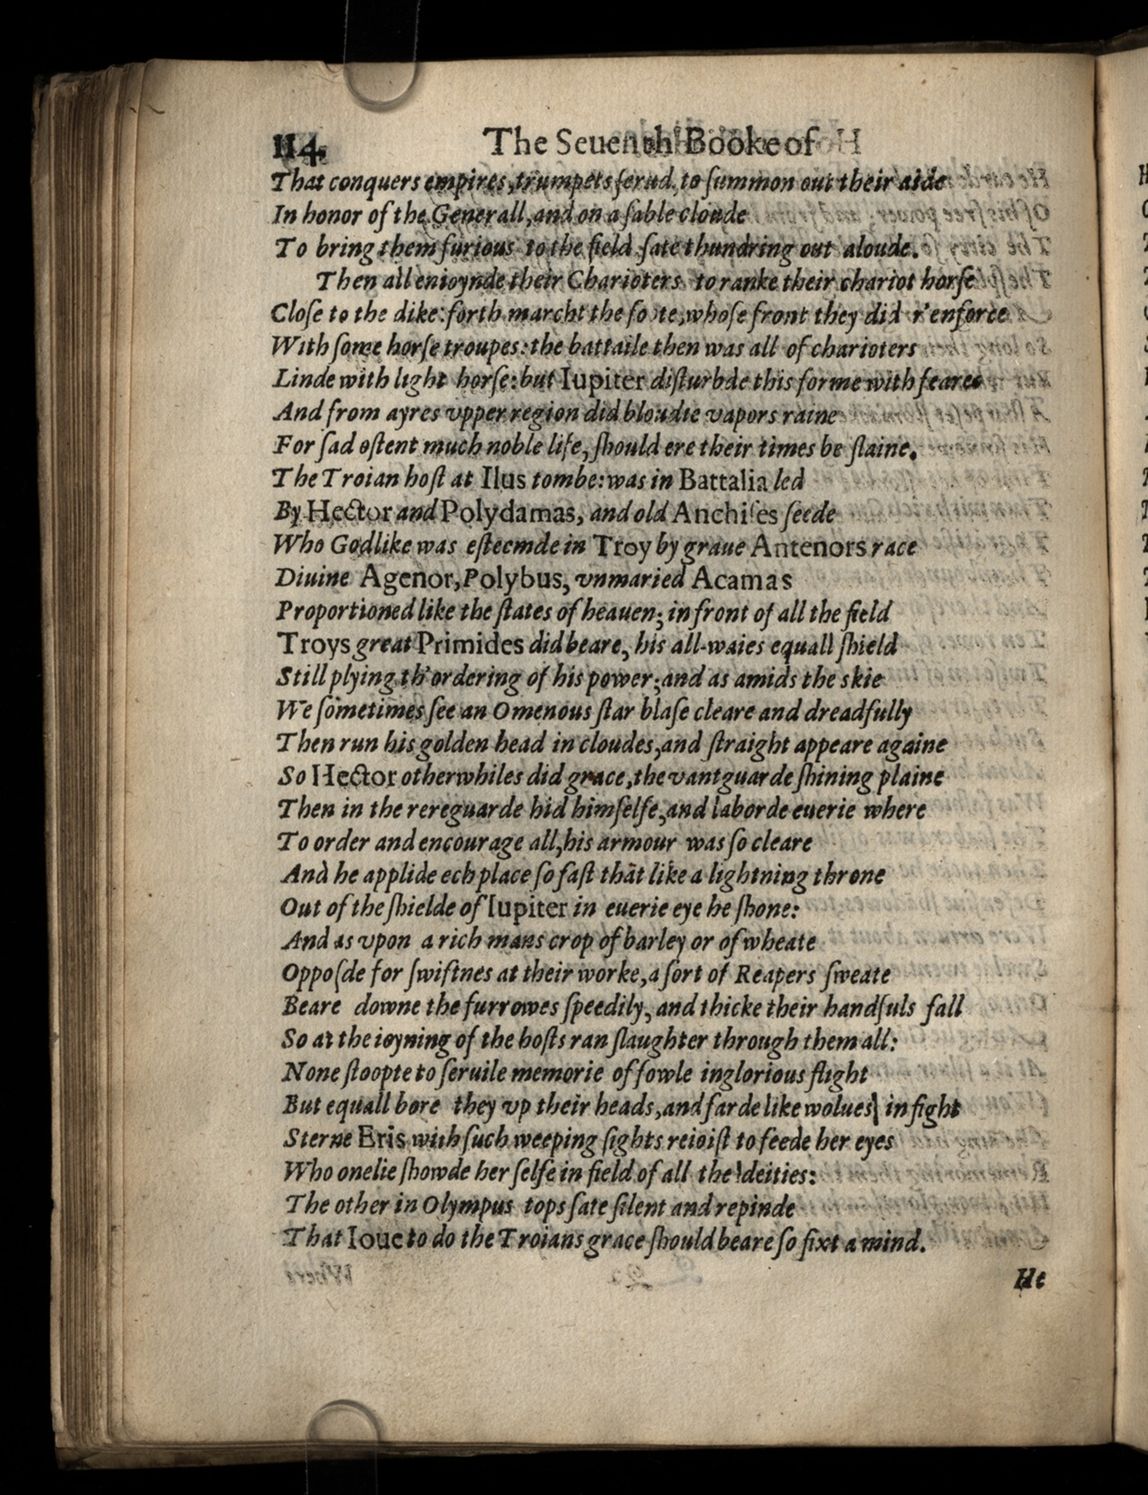 114. The Seuenth Booke of
That conquers empires, trumpets serud, to summon out their aide
In honor of the Generall, and on a sable cloude
To bring them furious to the field sate thundring out aloude.
Then all enioynde their Charioters to ranke their chariot horse
Close to the dike: forth marcht the foote, whose front they did r'enforce
With some horse troupes: the battaile then was all of charioters
Linde with light horse: but Iupiter disturbde this forme with feares
And from ayres vpper region did bloudie vapors raine
For sad ostent much noble life, should ere their times be slaine.
The Troian host at Ilus tombe: was in Battalia led
By Hector and Polydamas, and old Anchises seede
Who Godlike was esteemde in Troy by graue Antenors race
Diuine Agenor, Polybus, vnmaried Acamas
Proportioned like the states of heauen; in front of all the field
Troys great Primides did beare, his all-waies equall shield
Still plying th'ordering of his power; and as amids the skie
We sometimes see an Omenous star blase cleare and dreadfully
Then run his golden head in cloudes, and straight appeare againe
So Hector otherwhiles did grace, the vantguarde shining plaine
Then in the rereguarde hid himselfe, and laborde euerie where
To order and encourage all, his armour was so cleare
And he applide ech place so fast that like a lightning throne
Out of the shielde of Iupiter in euerie eye he shone:
And as vpon a rich mans crop of barley or of wheate
Opposde for swiftnes at their worke, a sort of Reapers sweate
Beare downe the furrowes speedily, and thicke their handfuls fall
So at the ioyning of the hosts ran slaughter through them all:
None stoopte to seruile memorie of fowle inglorious flight
But equall bore they vp their heads, and farde like wolues in fight
Sterne Eris with such weeping sights reioist to feede her eyes
Who onelie showde her selfe in field of all the deities:
The other in Olympus tops sate silent and repinde
That Ioue to do the Troians grace should beare so fixt a mind.
He